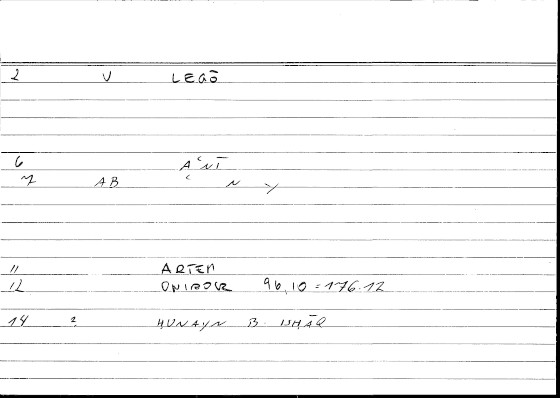 2 V LEGŌ
6 AʿNĪ
7 AB ʿ N Y
11 ARTEM
12 ONIROCR 96,10 = 176.12
14 2 ḤUNAYN B. ISḤĀQ